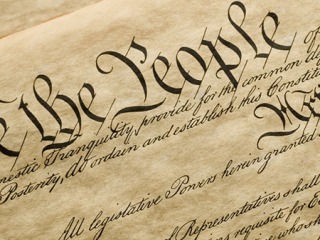 e the People of
mestic Tranquility, provide for the common
Posterity, do ordain and establish this Constitu
All legislative Powers herein granted
Representatives shall
requisite for
who sha